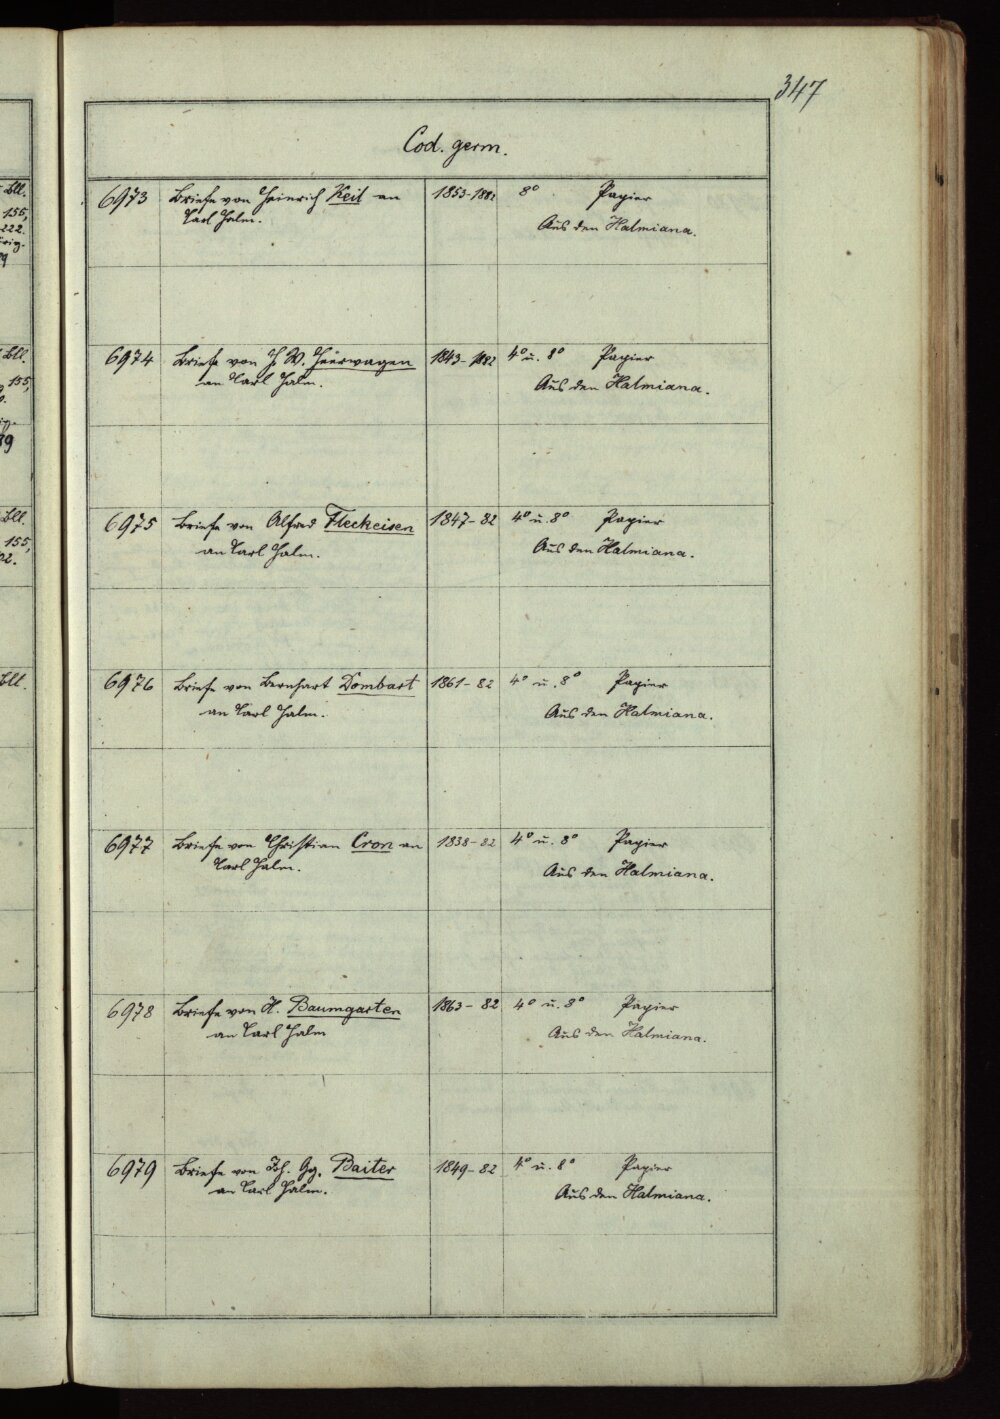 347
Cod. germ.
6973 Briefe von Heinrich Keil an 1853-1882 8° Papier
Carl Halm. Aus den Halmiana.
6974 Briefe von H. W. Heerwagen 1843-1882 4° u. 8° Papier
an Carl Halm. Aus den Halmiana.
6975 Briefe von Alfred Fleckeisen 1847-82 4° u. 8° Papier
an Carl Halm. Aus den Halmiana.
6976 Briefe von Bernhart Dombart 1861-82 4° u. 8° Papier
an Carl Halm. Aus den Halmiana.
6977 Briefe von Christian Cron an 1838-82 4° u. 8° Papier
Carl Halm. Aus den Halmiana.
6978 Briefe von H. Baumgarten 1863-82 4° u. 8° Papier
an Carl Halm Aus den Halmiana.
6979 Briefe von Joh. Gg. Baiter 1849-82 4° u. 8° Papier
an Carl Halm. Aus den Halmiana.
Bll.
155,
222.
Bll.
155,
Bll.
155,
Bll.